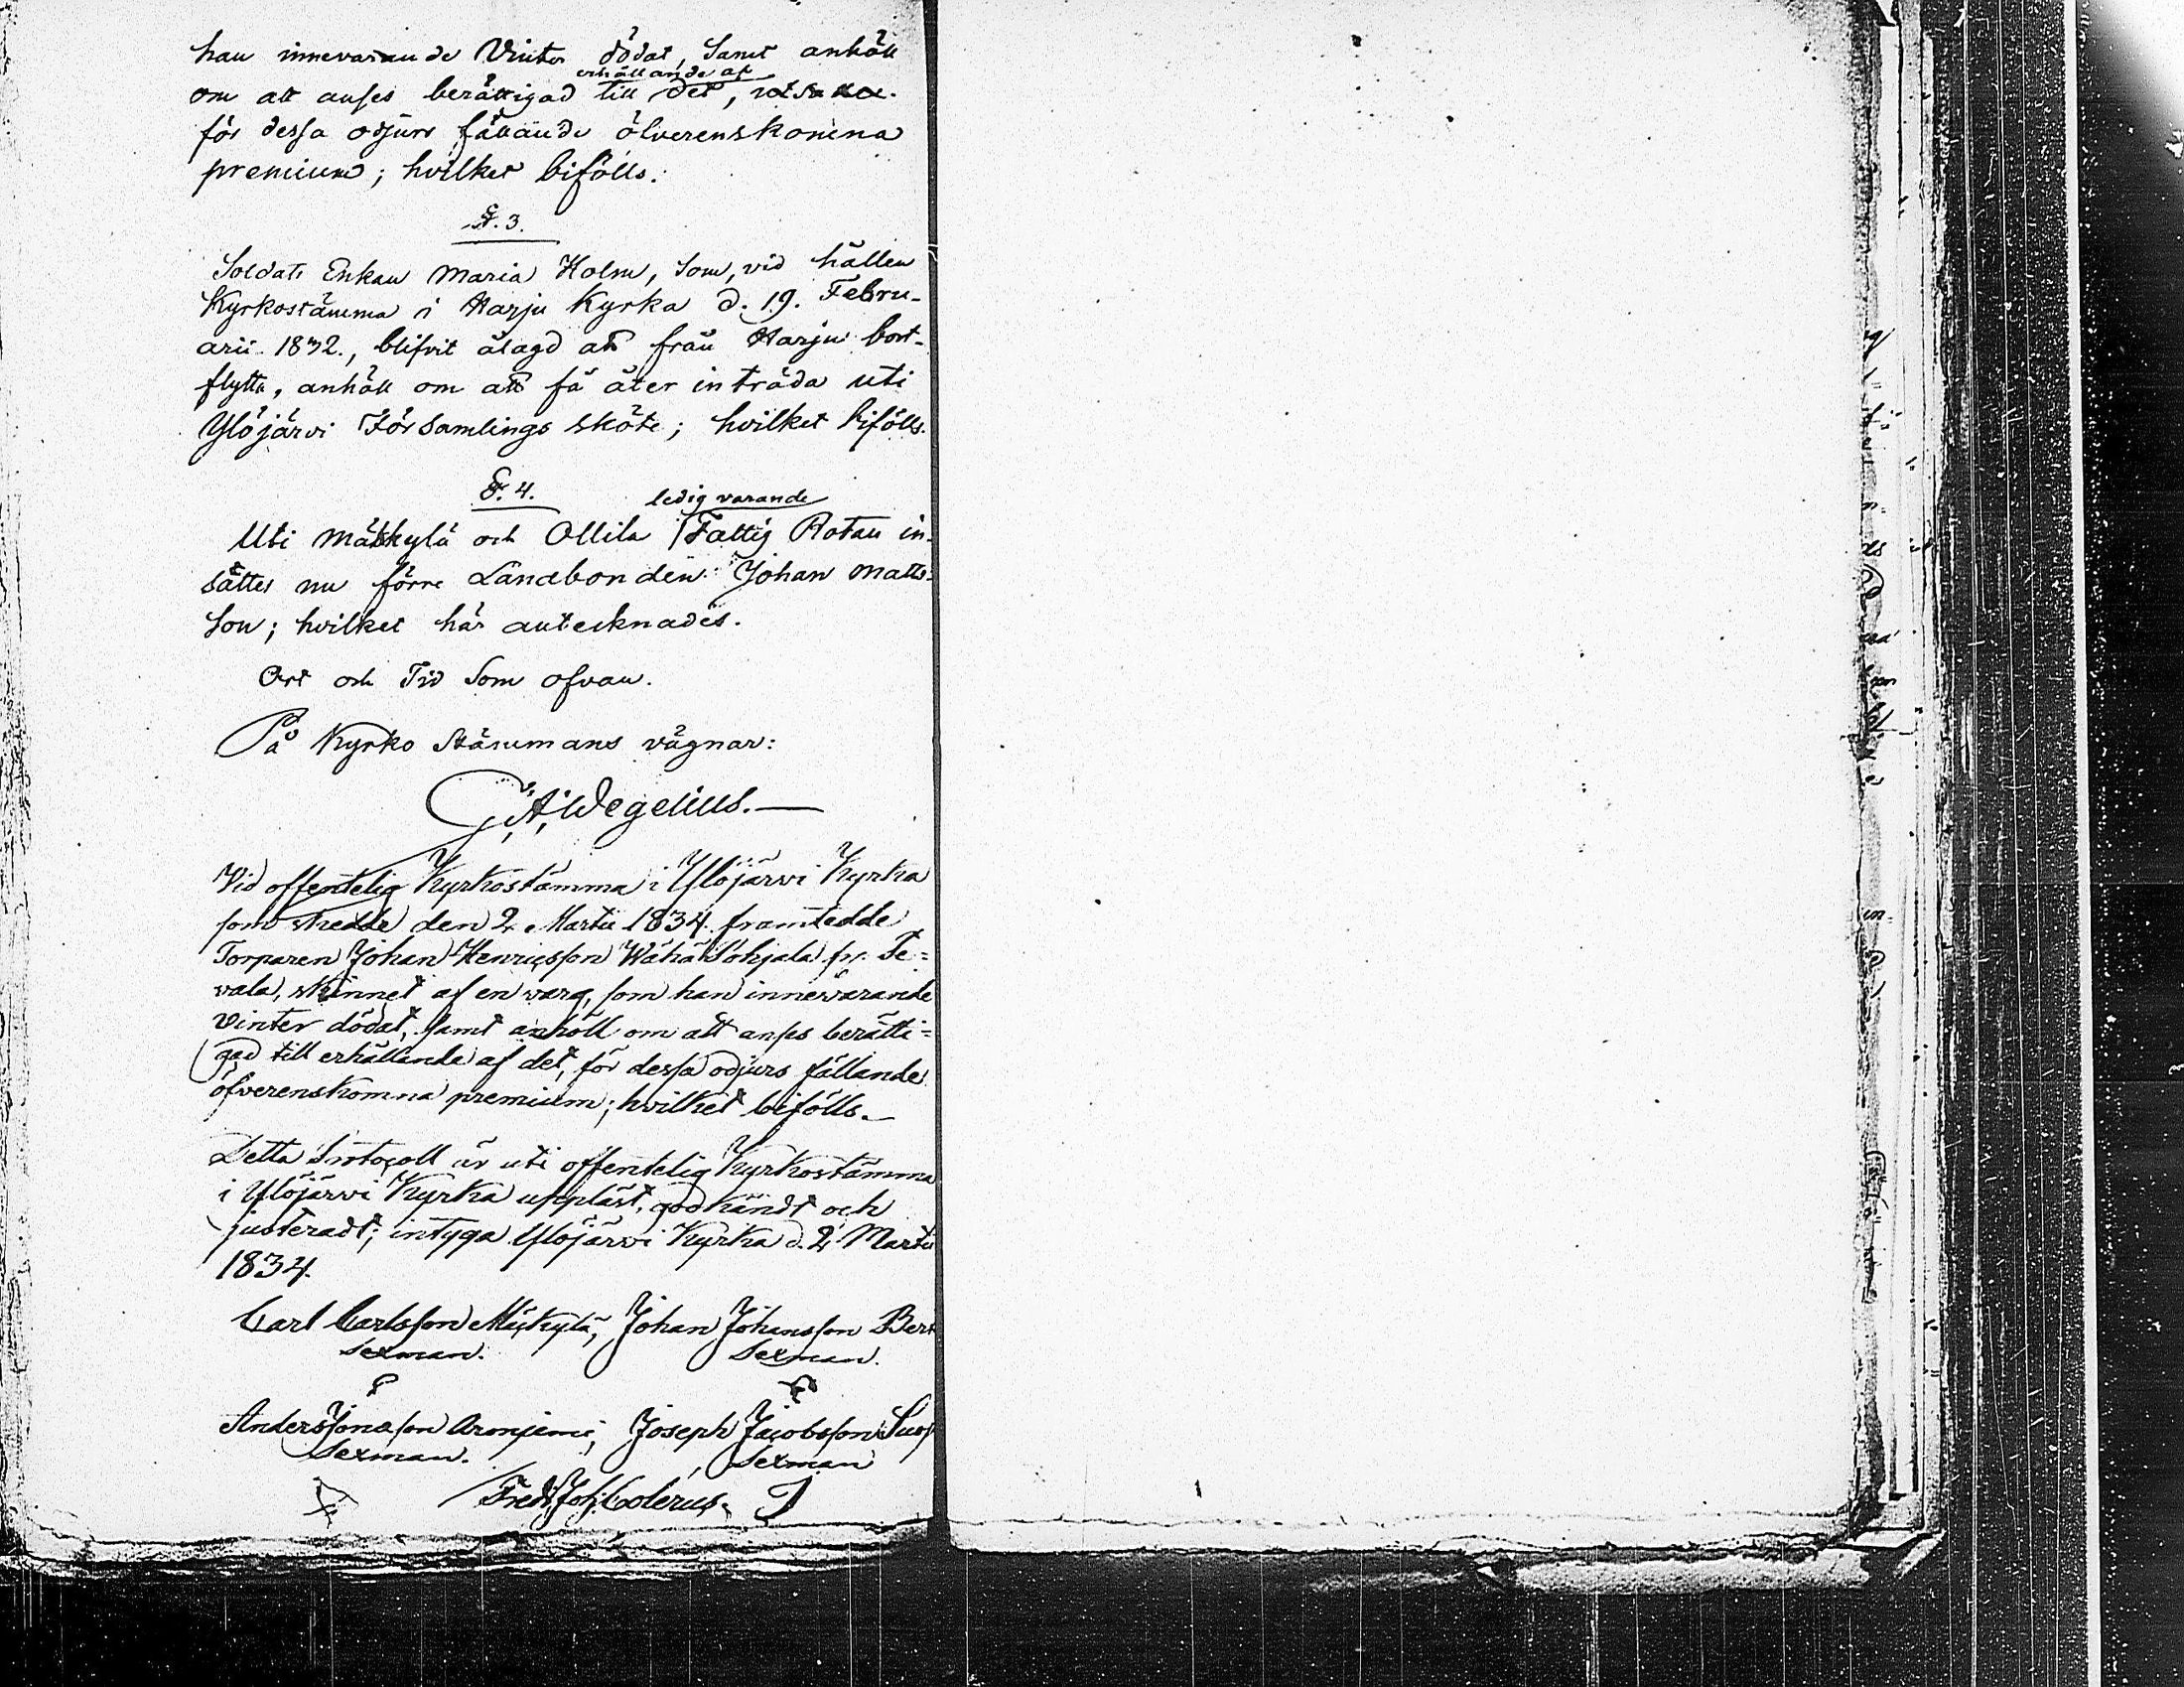 han innevarande Vinter dödat, Samt anhöll
erhållande af
om att anses berättigad till det,
för dessa odjurs fällande öfverenskomna
premium; hvilket bifölls.
§. 3.
Soldats Enkan Maria Holm, Som, vid hållen
Kyrkostämma i Harju Kyrka d. 19. Febru-
arii 1832., blifvit ålagd att från Harju bort-
flytta, anhöll om att få åter inträda uti
Ylöjärvi Församlings sköte; hvilket bifölls.
§. 4.
ledig varande
Uti Mäkkylä och Ollila Fattig Rotan in-
sättes nu förre Landbonden Johan Matts-
Son; hvilket här antecknades.
Ort och Tid Som ofvan.
På Kyrko Stämmans vägnar:
G. A. Wegelius.
Vid offentelig Kyrkostämma i Ylöjärvi Kyrka
som skedde den 2. Martii 1834. framtedde
Torparen Johan Henricsson Wähä Sohjala fr. Te=
vala, skinnet af en varg, som han innevarande
Vinter dödat, samt anhöll om att anses berätti=
gad till erhållande af det, för dessa odjurs fällande
öfverenskomna premium; hvilket bifölls.
Detta Protocoll är uti offentelig Kyrkostämma
i Ylöjärvi Kyrka uppläst, godkändt och
justeradt; intyga Ylöjärvi Kyrka d. 2 Martii
1834.
Carl Carlsson Mäkkylä, Johan Johansson
Sexman. Sexman.
Anders Jonasson Joseph Jacobsson
Sexman. Sexman
Fredr. Joh. Colerus.